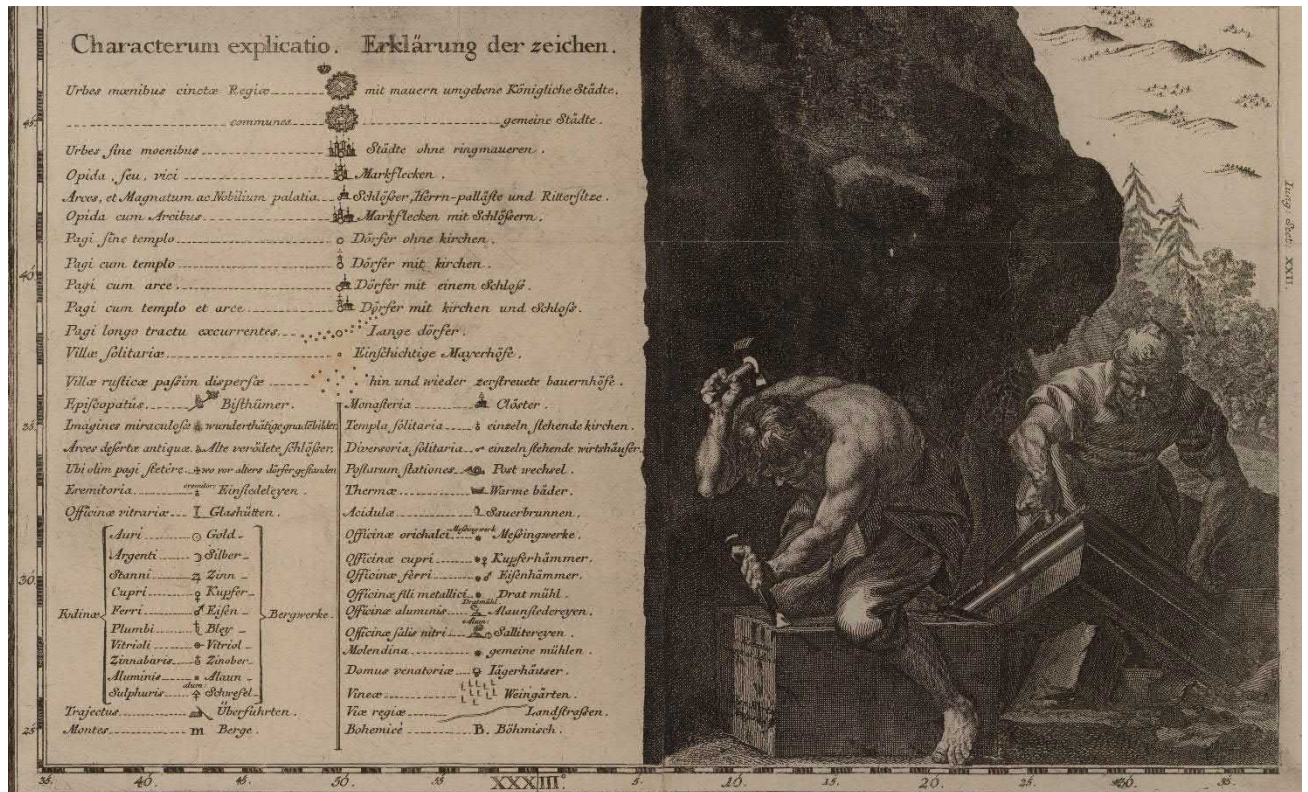 Characterum explicatio. Erklärung der zeichen.
Urbes mœnibus cinctæ Regiæ mit mauern umgebene Königliche Städte.
communes gemeine Städte.
Urbes ſine moenibus Städte ohne ringmaueren.
Opida, ſeu, vici Markflecken.
Arces, et Magnatum ac Nobilium palatia Schlöſser, Herrn-palläſte und Ritterſitze.
Opida cum Arcibus Markflecken mit Schlöſsern.
Pagi ſine templo Dörfer ohne kirchen.
Pagi cum templo Dörfer mit kirchen.
Pagi cum arce Dörfer mit einem Schloſs.
Pagi cum templo et arce Dörfer mit kirchen und Schloſs.
Pagi longo tractu excurrentes Lange dörfer.
Villæ ſolitariæ Einſchichtige Mayerhöfe.
Villæ ruſticæ paſſim disperſæ hin und wieder zerſtreuete bauernhöfe.
Epiſcopatus Biſthümer.
Imagines miraculoſæ wunderthätige gnadēbilder
Arces deſertæ antiquæ Alte verödete ſchlöſser.
Ubi olim pagi ſtetêre wo vor alters dörfer geſtanden
Eremitoria eremitor: Einſiedeleyen.
Officinæ vitrariæ Glashütten.
Fodinæ
Auri ☉ Gold-
Argenti ☽ Silber-
Stanni ♃ Zinn-
Cupri ♀ Kupfer-
Ferri ♂ Eiſen-
Plumbi ♄ Bley-
Vitrioli Vitriol-
Zinnabaris Zinober-
Aluminis alum: Alaun-
Sulphuris Schwefel-
Bergwerke.
Trajectus Überfuhrten.
Montes m Berge.
Monaſteria Clöſter.
Templa ſolitaria einzeln ſtehende kirchen.
Diverſoria ſolitaria einzeln ſtehende wirtshäuſer.
Poſtarum ſtationes Poſt wechſel.
Thermæ Warme bäder.
Acidulæ Sauerbrunnen.
Officinæ orichalci Meſsingwerk Meſsingwerke.
Officinæ cupri ♀ Kupferhämmer.
Officinæ ferri ♂ Eiſenhämmer.
Officinæ fili metallici Dratmühl Drat mühl.
Officinæ aluminis Alum: Alaunſiedereyen.
Officinæ ſalis nitri Sallitereyen.
Molendina gemeine mühlen.
Domus venatoriæ Iägerhäuser.
Vineæ Weingärten.
Viæ regiæ Landſtraſsen.
Bohemicé B. Böhmisch.
45
40
35
30
25
35. 40. 45. 50. 55 XXXIII° 5. 10. 15. 20. 25. 30. 35.
Iung: Sect: XXII.